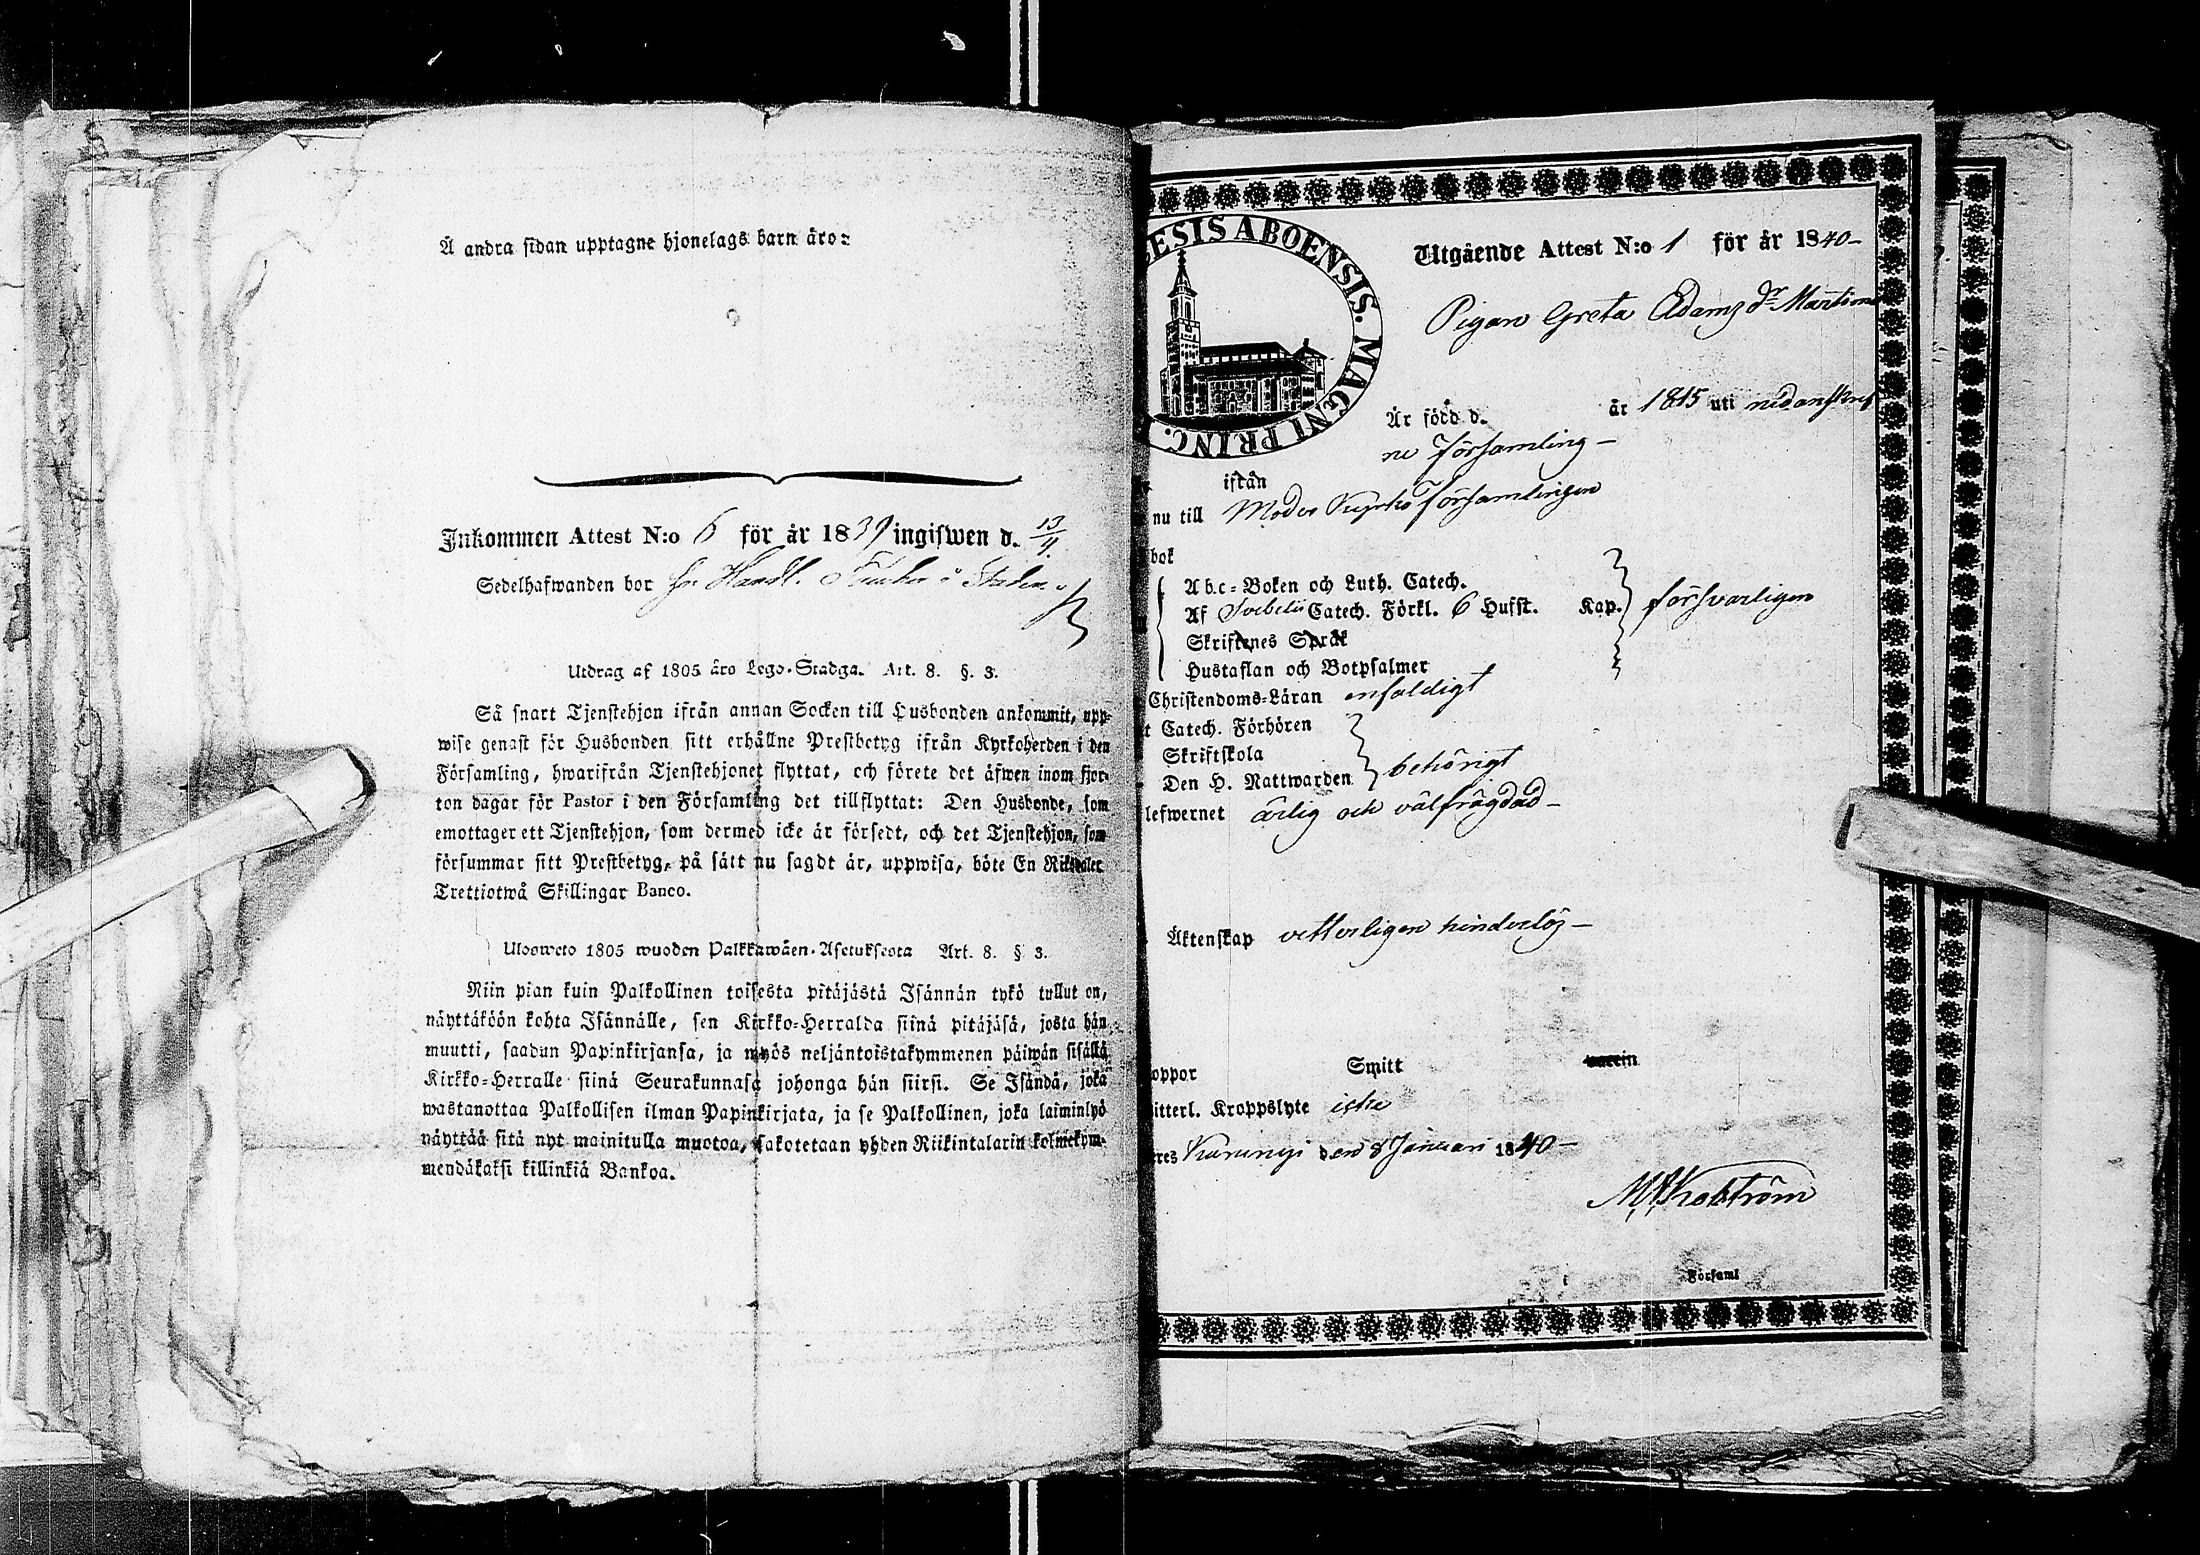 Å andra sidan upptagne hjonelags barn äro:
Inkommen Attest N:o 6 för år 1839 ingifwen d. 13/4.
Sedelhafwanden bor hos Handl. i Staden
Utdrag af 1805 års Lego-Stadga. Art. 8. §. 3.
Så snart Tjenstehjon ifrån annan Socken till Husbonden ankommit, upp-
wise genast för Husbonden sitt erhållne Prestbetyg ifrån Kyrkoherden i den
Församling, hwarifrån Tjenstehjonet flyttat, och förete det äfwen inom fjor-
ton dagar för Pastor i den Församling det tillflyttat: Den Husbonde, som
emottager ett Tjenstehjon, som dermed icke är försedt, och det Tjenstehjon, som
försummar sitt Prestbetyg, på sätt nu sagdt är, uppwisa, böte En Riksdaler
Trettiotwå Skillingar Banco.
Ulosweto 1805 wuoden Palkkawäen-Asetuksesta Art. 8. § 3.
Niin pian kuin Palkollinen toisesta pitäjästä Isännän tykö tullut on,
näyttäköön kohta Isännälle, sen Kirkko-Herralda siinä pitäjäsä, josta hän
muutti, saadun Papinkirjansa, ja myös neljäntoistakymmenen päiwän sisällä
Kirkko-Herralle siinä Seurakunnasa johonga hän siirsi. Se Isändä, joka
wastanottaa Palkollisen ilman Papinkirjata, ja se Palkollinen, joka laiminlyö
näyttää sitä nyt mainitulla muotoa, sakotetaan yhden Riikintalarin kolmekym-
mendäkaksi killinkiä Bankoa.
ESIS ABOENSIS. MAGNI PRINC.
Utgående Attest N:o 1 för år 1840
Pigan Greta Adams dr Martin
Är född d. år 1815 uti nedanskref
ne församling
ifrån
nu till Moder Kyrko församlingen
bok
Abc-Boken och Luth. Catech.
Af Svebelii Catech. Förkl. 6 Hufst. Kap. försvarligen
Skriftenes Språk
Hustaflan och Botpsalmer
Christendoms-Läran enfaldigt
t Catech. Förhören
Skriftskola
Den H. Nattwarden behörigt
lefwernet ärlig och välfrägdad
Äktenskap vetterligen hinderlös
oppor Smitt warin
itterl. Kroppslyte icke
res Karungi den 8 Januari 1840
i Församl